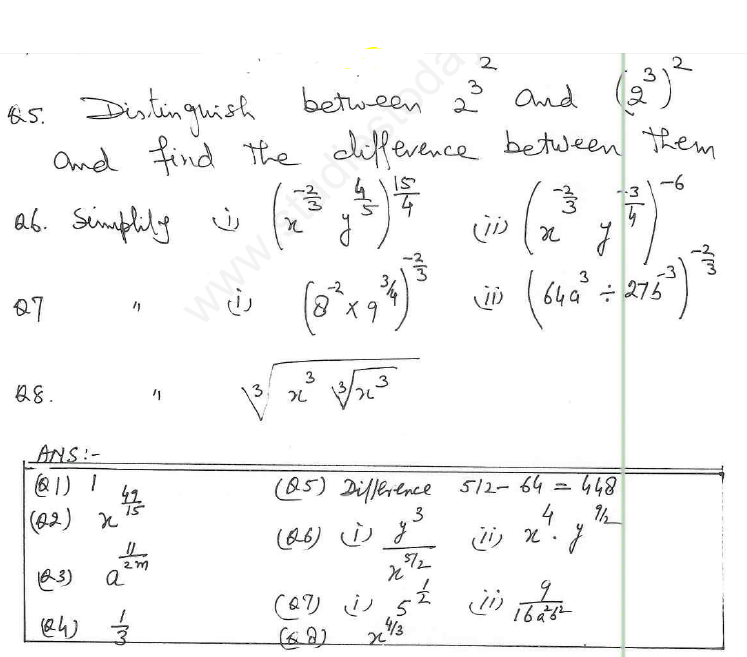 Q5. Distinguish between 2^3^2 and (2^3)^2
and find the difference between them
Q6. Simplify i) (x^(-2/3) y^(4/5))^(15/4) (ii) (x^(-2/3) y^(-3/4))^-6
Q7 " (i) (8^-2 × 9^(3/4))^(-2/3) (ii) (64a^3 ÷ 27b^-3)^(-2/3)
Q8. " ∛(x^3 ∛(x^3))
ANS:-
(Q1) 1 (Q5) Difference 512 - 64 = 448
(Q2) x^(49/15) (Q6) i) y^3/x^(5/2) ii) x^4 . y^(9/2)
(Q3) a^(11/2m)
(Q7) i) 5^(1/2) ii) 9/(16a^2b^2)
(Q4) 1/3 (Q8) x^(4/3)